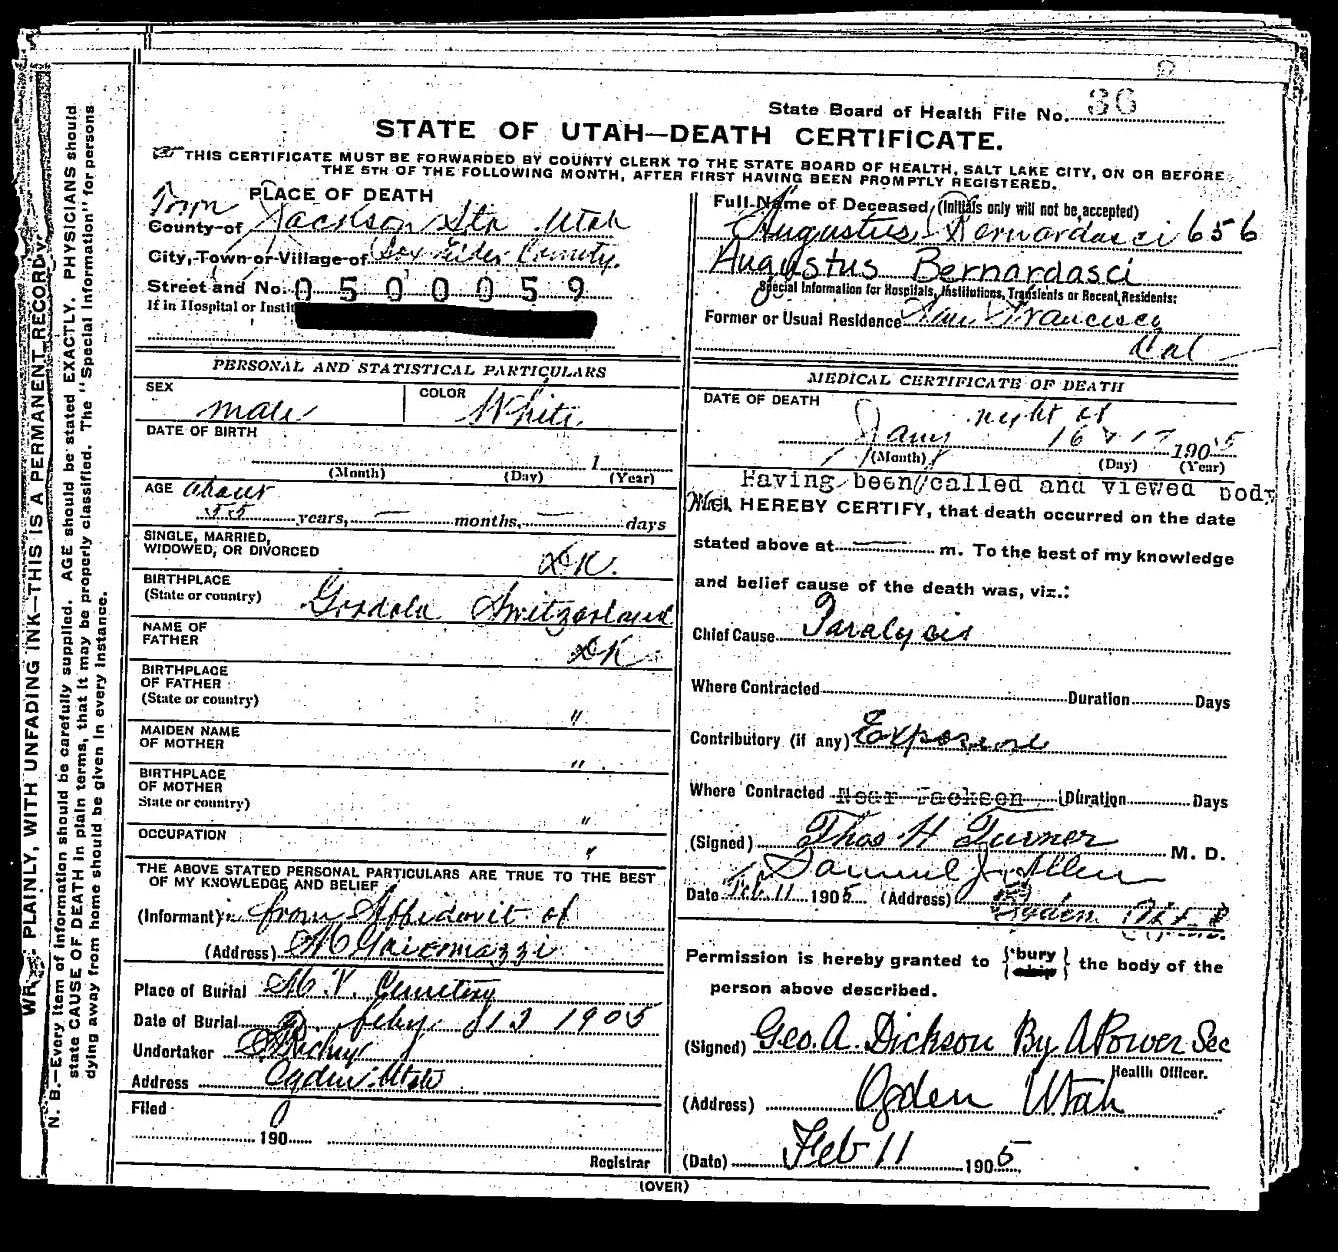 State Board of Health File No. 36
STATE OF UTAH—DEATH CERTIFICATE.
THIS CERTIFICATE MUST BE FORWARDED BY COUNTY CLERK TO THE STATE BOARD OF HEALTH, SALT LAKE CITY, ON OR BEFORE
THE 5TH OF THE FOLLOWING MONTH, AFTER FIRST HAVING BEEN PROMPTLY REGISTERED.
PLACE OF DEATH
Town
County of Jackson Sta Utah
City, Town or Village of Box Elder County.
Street and No. 0500059
If in Hospital or Instit
Full Name of Deceased (Initials only will not be accepted)
Augustus Bernardasci 656
Augustus Bernardasci
Special Information for Hospitals, Institutions, Transients or Recent Residents:
Former or Usual Residence San Francisco
Cal
PERSONAL AND STATISTICAL PARTICULARS
SEX male
COLOR White
DATE OF BIRTH
1
(Month) (Day) (Year)
AGE about
55 years, — months, — days
SINGLE, MARRIED,
WIDOWED, OR DIVORCED DK.
BIRTHPLACE
(State or country) Gordola Switzerland
NAME OF
FATHER DK
BIRTHPLACE
OF FATHER
(State or country) "
MAIDEN NAME
OF MOTHER "
BIRTHPLACE
OF MOTHER
State or country) "
OCCUPATION "
THE ABOVE STATED PERSONAL PARTICULARS ARE TRUE TO THE BEST
OF MY KNOWLEDGE AND BELIEF
(Informant) from Affidavit of
(Address)
Place of Burial M. V. Cemetery
Date of Burial Feby 1905
Undertaker
Address Ogden Utah
Filed
190
Registrar
MEDICAL CERTIFICATE OF DEATH
DATE OF DEATH
night of
Jany 16 & 17 1905
(Month) (Day) (Year)
Having been called and viewed body
We HEREBY CERTIFY, that death occurred on the date
stated above at — m. To the best of my knowledge
and belief cause of the death was, viz.:
Chief Cause Paralysis
Where Contracted Duration Days
Contributory (if any) Exposure
Where Contracted Near Jackson Duration Days
(Signed) Thos H Turner M. D.
Samuel J. Allen
Date Feb 11 1905 (Address) Ogden
Permission is hereby granted to {bury ship} the body of the
person above described.
(Signed) Geo. A. Dickson By A Power Sec
Health Officer.
(Address) Ogden Utah
(Date) Feb 11 1905
(OVER)
WRITE PLAINLY, WITH UNFADING INK—THIS IS A PERMANENT RECORD
N. B.—Every item of information should be carefully supplied. AGE should be stated EXACTLY. PHYSICIANS should
state CAUSE OF DEATH in plain terms, that it may be properly classified. The "Special Information" for persons
dying away from home should be given in every instance.